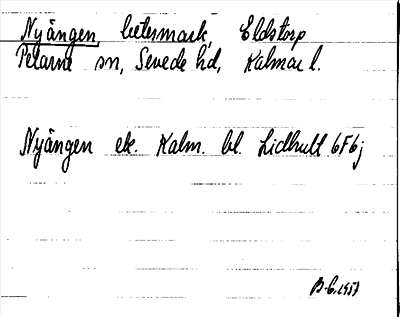 Nyängen, betesmark, Eldstorp
Pelarne sn, Sevede hd, Kalmar l.
Nyängen ek. Kalm. bl. Lidhult 6F6j
B-C. 1953